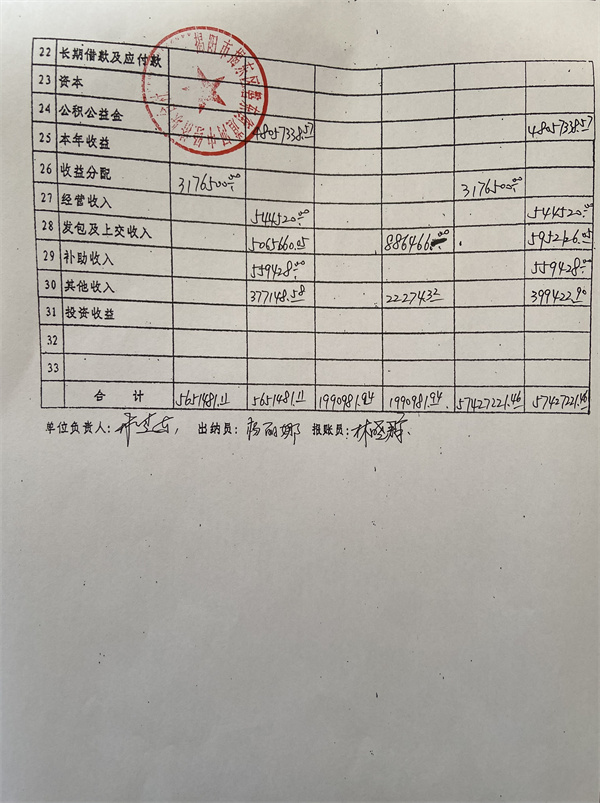 22 长期借款及应付款
23 资本
24 公积公益金 48057338.57 48057338.57
25 本年收益
26 收益分配 3176500.00 3176500.00
27 经营收入 544520.00 544520.00
28 发包及上交收入 5065660.05 886466 5952126.05
29 补助收入 559428.00 559428.00
30 其他收入 377148.58 22274.32 399422.90
31 投资收益
32
33
合 计 5651481.11 5651481.11 1990981.94 1990981.94 57427221.46 57427221.46
单位负责人： 出纳员：杨丽娜 报账员：林
揭阳市揭东区